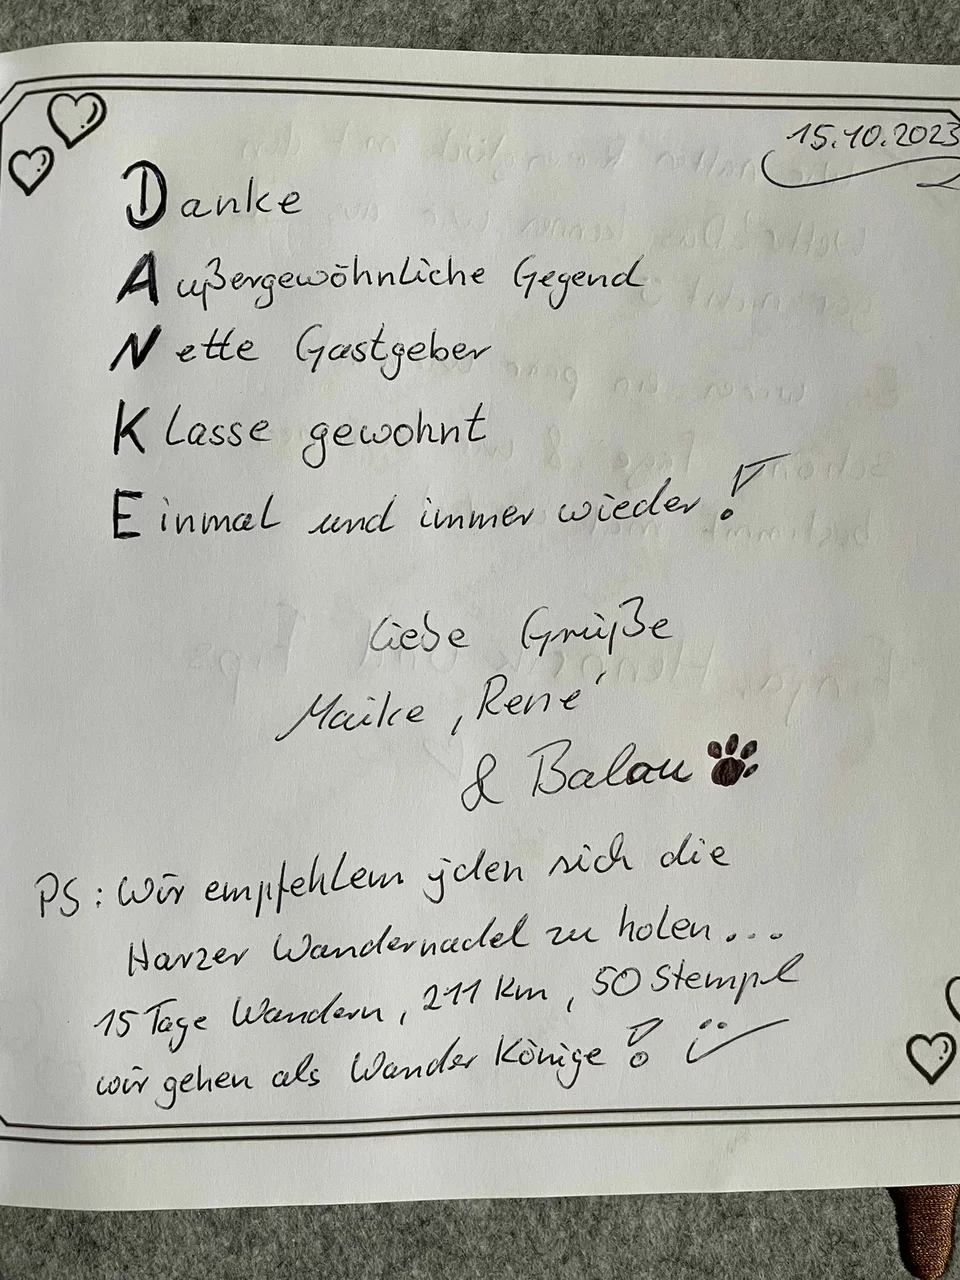 15.10.2023
Danke
Außergewöhnliche Gegend
Nette Gastgeber
Klasse gewohnt
Einmal und immer wieder!
Liebe Grüße
Maike, René
& Balou
PS: Wir empfehlem jden sich die
Harzer Wandernadel zu holen...
15 Tage Wandern, 211 km, 50 Stempel
wir gehen als Wander Könige!